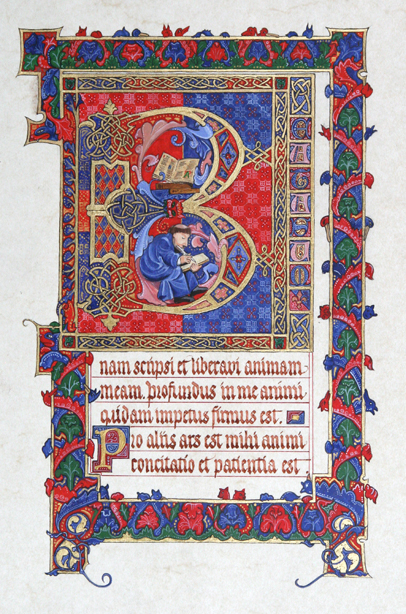 B
nam scripsi et liberavi animam
meam. Profundus in me animi
quidam impetus firmus est.
Pro aliis ars est mihi animi
concitatio et patientia est